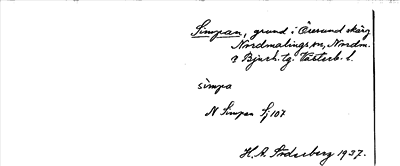 Simpan, grund i Öresund skärg
Nordmalings sn, Nordm.
o Bjurh. tg. Västerb. l.
simpa
N Simpan Sj 107
H.A. Söderberg 1937.